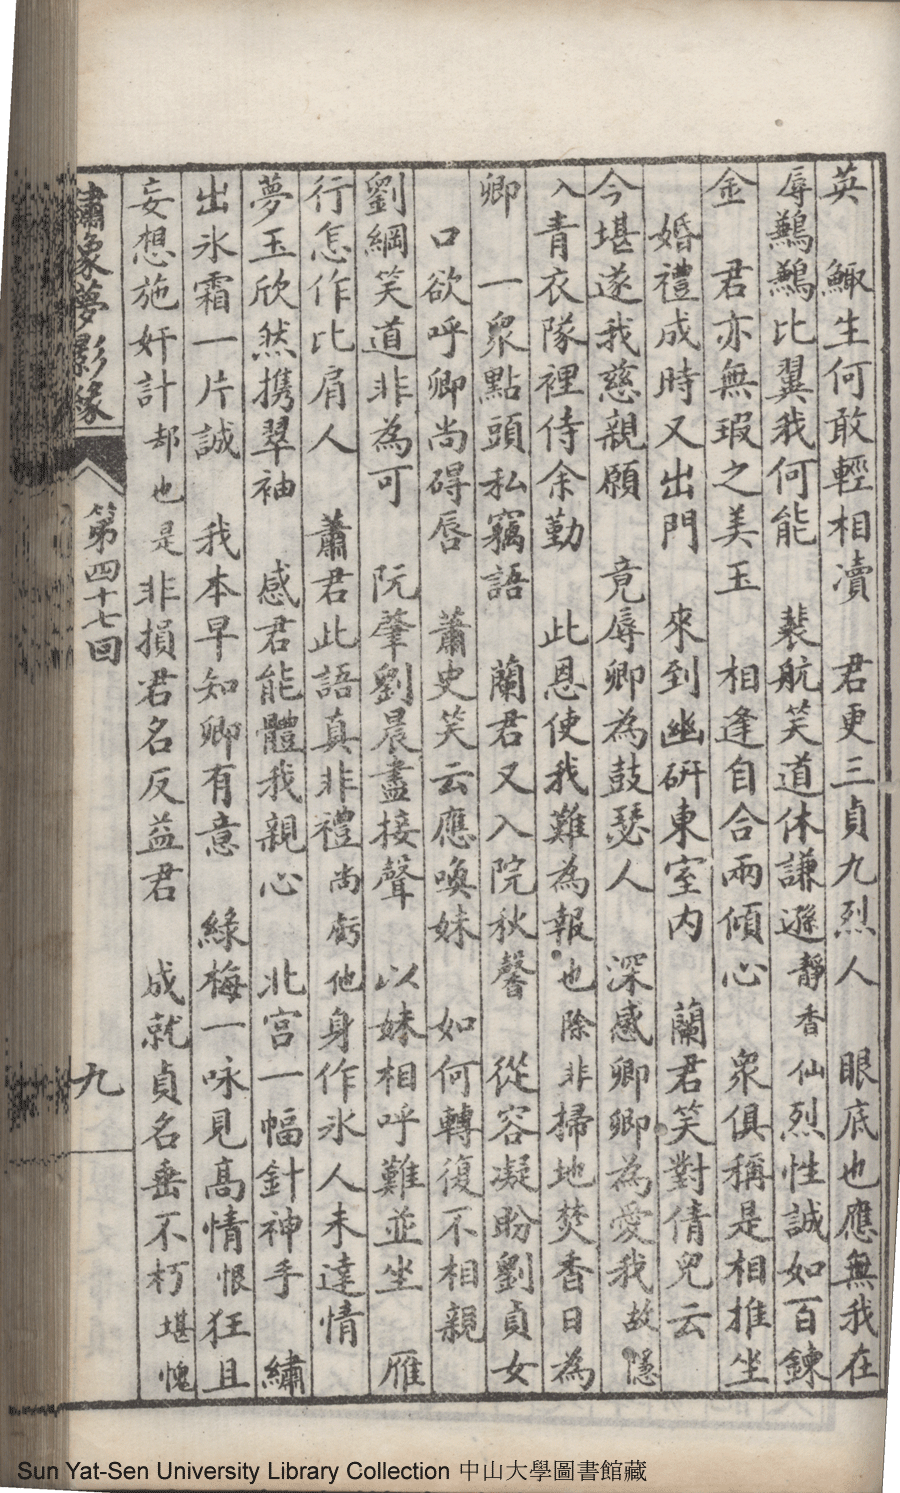 英　鯫生何敢輕相凟　君更三貞九烈人　眼底也應無我在
辱鶼鶼比翼我何能　裴航笑道休謙遜靜香仙烈性誠如百鍊
金　君亦無瑕之美玉　相逢自合兩傾心　衆俱稱是相推坐
婚禮成時又出門　來到幽硏東室内　蘭君笑對倩兒云
今堪遂我慈親願　竟辱卿為鼓瑟人　深感卿卿為愛我故隱
入青衣隊裡侍余勤　此恩使我難為報也除非掃地焚香日為
卿　一衆點頭私竊語　蘭君又入院秋馨　從容凝盼劉貞女
口欲呼卿尚碍唇　蕭史笑云應喚妹　如何轉復不相親
劉綱笑道非為可　阮肇劉晨盡接聲　以妹相呼難並坐　雁
行怎作比肩人　蕭君此語真非禮尚虧他身作氷人未達情
夢玉欣然携翠袖　感君能體我親心　北宫一幅針神手　繡
出氷霜一片誠　我本早知卿有意　綠梅一咏見高情恨狂且
妄想施奸計却也是非損君名反益君　成就貞名垂不朽堪愧
繡象夢影緣　第四十七回　九
Sun Yat-Sen University Library Collection 中山大學圖書館藏